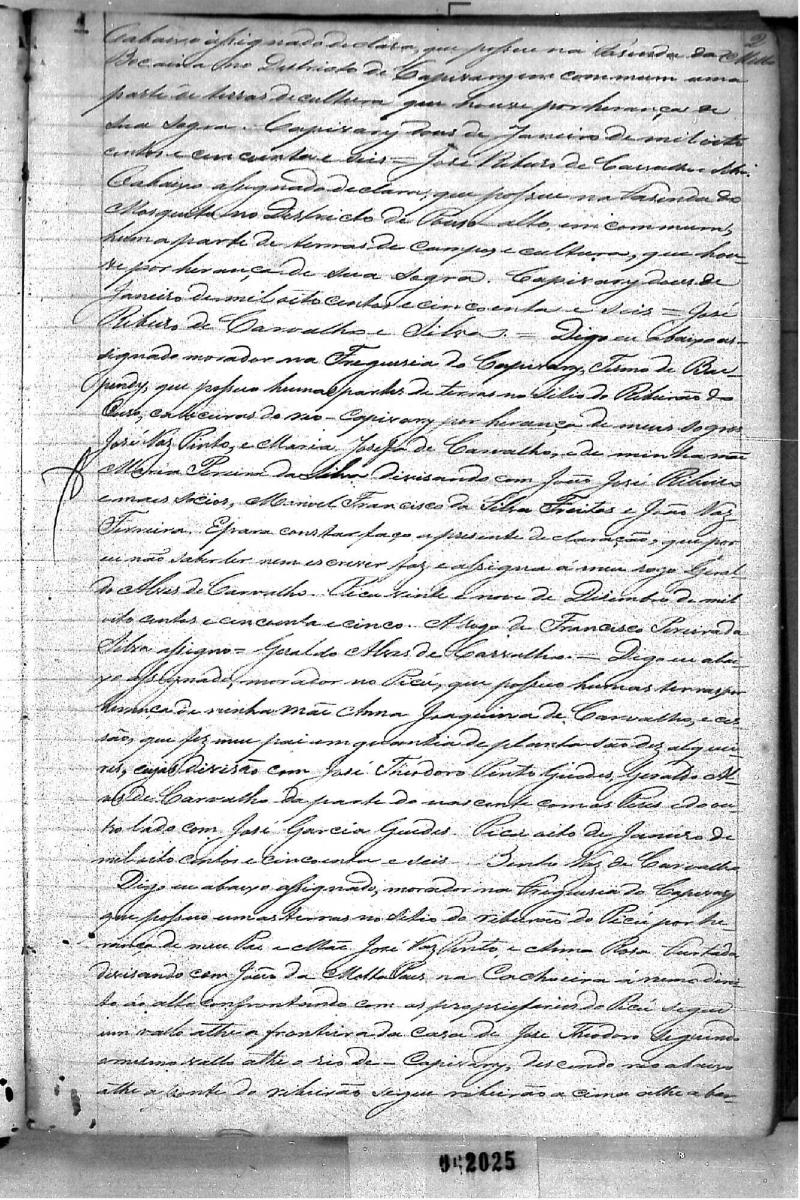 2
Mello
O abaixo assignado declara, que possue na fasenda da
Bocaina no Districto de Capivary em commum uma
parte de terras de cultura que houve por herança de
sua sogra. Capivary dous de Janeiro de mil oito
centos e cincoenta e seis = José Ribeiro de Carvalho e Silva.
O abaixo assignado declara, que possue na fasenda do
no Districto de Pouso alto, em commum,
huma parte de terras de campos e cultura, que hou-
ve por herança de sua sogra. Capivary dous de
Janeiro de mil oito centos e cincoenta e seis = José
Ribeiro de Carvalho e Silva. = Digo eu abaixo as-
signado morador na Freguesia do Capivary, Termo de Bae-
pendy, que possuo humas partes de terras no Sitio do Ribeirão do
Ouro, cabiceiras do rio Capivary por herança de meus sogros
José Vaz Pinto, e Maria Josefa de Carvalho, e de minha mãe
Maria Pereira da Silva divisando com João José Ribeiro
e mais socios, Manoel Francisco da Silva Freitas e João Vaz
Ferreira. E para constar faço a presente declaração, que por
eu não saber ler nem escrever faz, e assigna a meu rogo Geral-
do Alves de Carvalho. Picú vinte e nove de Desembro de mil
oito centos e cincoenta e cinco. A rogo de Francisco Pereira da
Silva assigno = Geraldo Alves de Carvalho. = Digo eu abai-
xo assignado, morador no Picú, que possuo humas terras por
herança de minha Mãe Anna Joaquina de Carvalho, e ces-
são, que fez meu pai em quantia de planta são dez alquei-
res, cuja divisão com José Theodoro Pinto Guedes, Geraldo Al-
ves de Carvalho da parte do nascente com os e do ou-
tro lado com José Garcia Guedes. Picú oito de Janeiro de
mil oito centos e cincoenta e seis Bento Vaz de Carvalho
Digo eu abaixo assignado, morador na Freguesia do Capivary
que possuo umas terras no Sitio do ribeirão do Picú por he-
rança de meu Pai e Mãe José Vaz Pinto, e Anna Rosa Furtada
divisando com João da Motta Paes na Cachoeira á rumo direi-
to ao alto confrontando com os proprietarios do Picú segue
um vallo athe a fronteira da casa de José Theodoro seguindo
o mesmo vallo athe o rio de Capivary, descendo rio abaixo
athe a ponte do ribeirão segue ribeirão a cima athe a bar-
2025